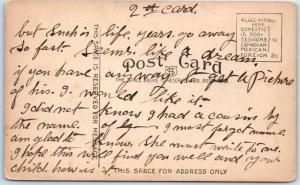 2nd Card.
but such is life, years go away
so fast seems like a dream
if you have any way to get a Picture
of his. I would like it
I did not know I had a cousin by
the name. of I must forgot name.
am glad to know. She must write to me.
I hope this will find you well and your
child how is it
PLACE POSTAGE
HERE
DOMESTIC
CANADIAN
MEXICAN
FOREIGN 2c
Post Card
THIS SPACE FOR MESSAGE
THIS SPACE FOR ADDRESS ONLY